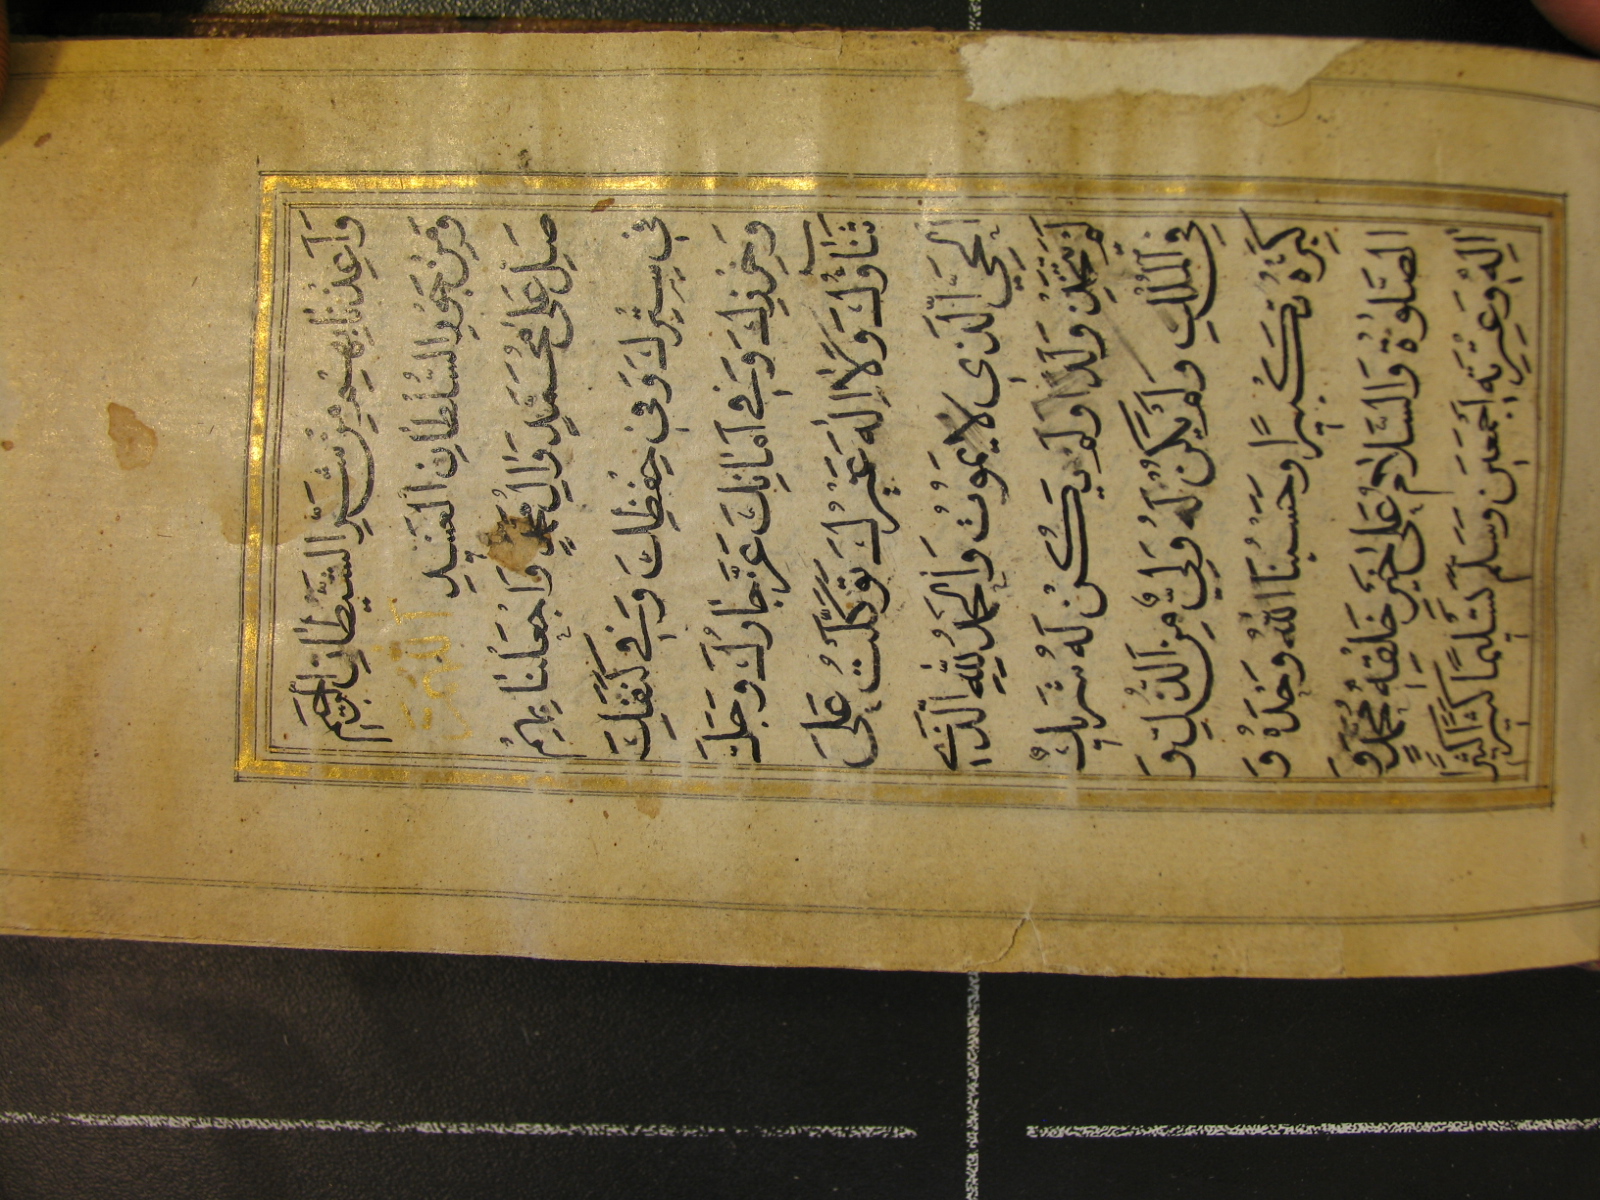 وَاَعِذْنَا بِهِمْ مِنْ شَرِّ الشَّيْطَانِ الرَّجِيْمِ
وَمِنْ جَوْرِ السُّلْطَانِ الْعَنِيْدِ اَللّٰهُمَّ
صَلِّ عَلٰى مُحَمَّدٍ وَاٰلِ مُحَمَّدٍ وَاجْعَلْنَا بِهِمْ
فِيْ سِتْرِكَ وَفِيْ حِفْظِكَ وَفِيْ كَنَفِكَ
وَحِرْزِكَ وَفِيْ اَمَانِكَ عَزَّ جَارُكَ وَجَلَّ
ثَنَاؤُكَ وَلَا اِلٰهَ غَيْرُكَ تَوَكَّلْتُ عَلَى
الْحَيِّ الَّذِيْ لَا يَمُوْتُ وَالْحَمْدُ لِلّٰهِ الَّذِيْ
لَمْ يَتَّخِذْ وَلَدًا وَلَمْ يَكُنْ لَهُ شَرِيْكٌ
فِي الْمُلْكِ وَلَمْ يَكُنْ لَهُ وَلِيٌّ مِنَ الذُّلِّ وَ
كَبِّرْهُ تَكْبِيْرًا وَحَسْبُنَا اللّٰهُ وَحْدَهُ وَ
الصَّلٰوةُ وَالسَّلَامُ عَلٰى خَيْرِ خَلْقِهِ مُحَمَّدٍ وَ
اٰلِهِ وَعِتْرَتِهِ اَجْمَعِيْنَ وَسَلَّمَ تَسْلِيْمًا كَثِيْرًا كَثِيْرًا